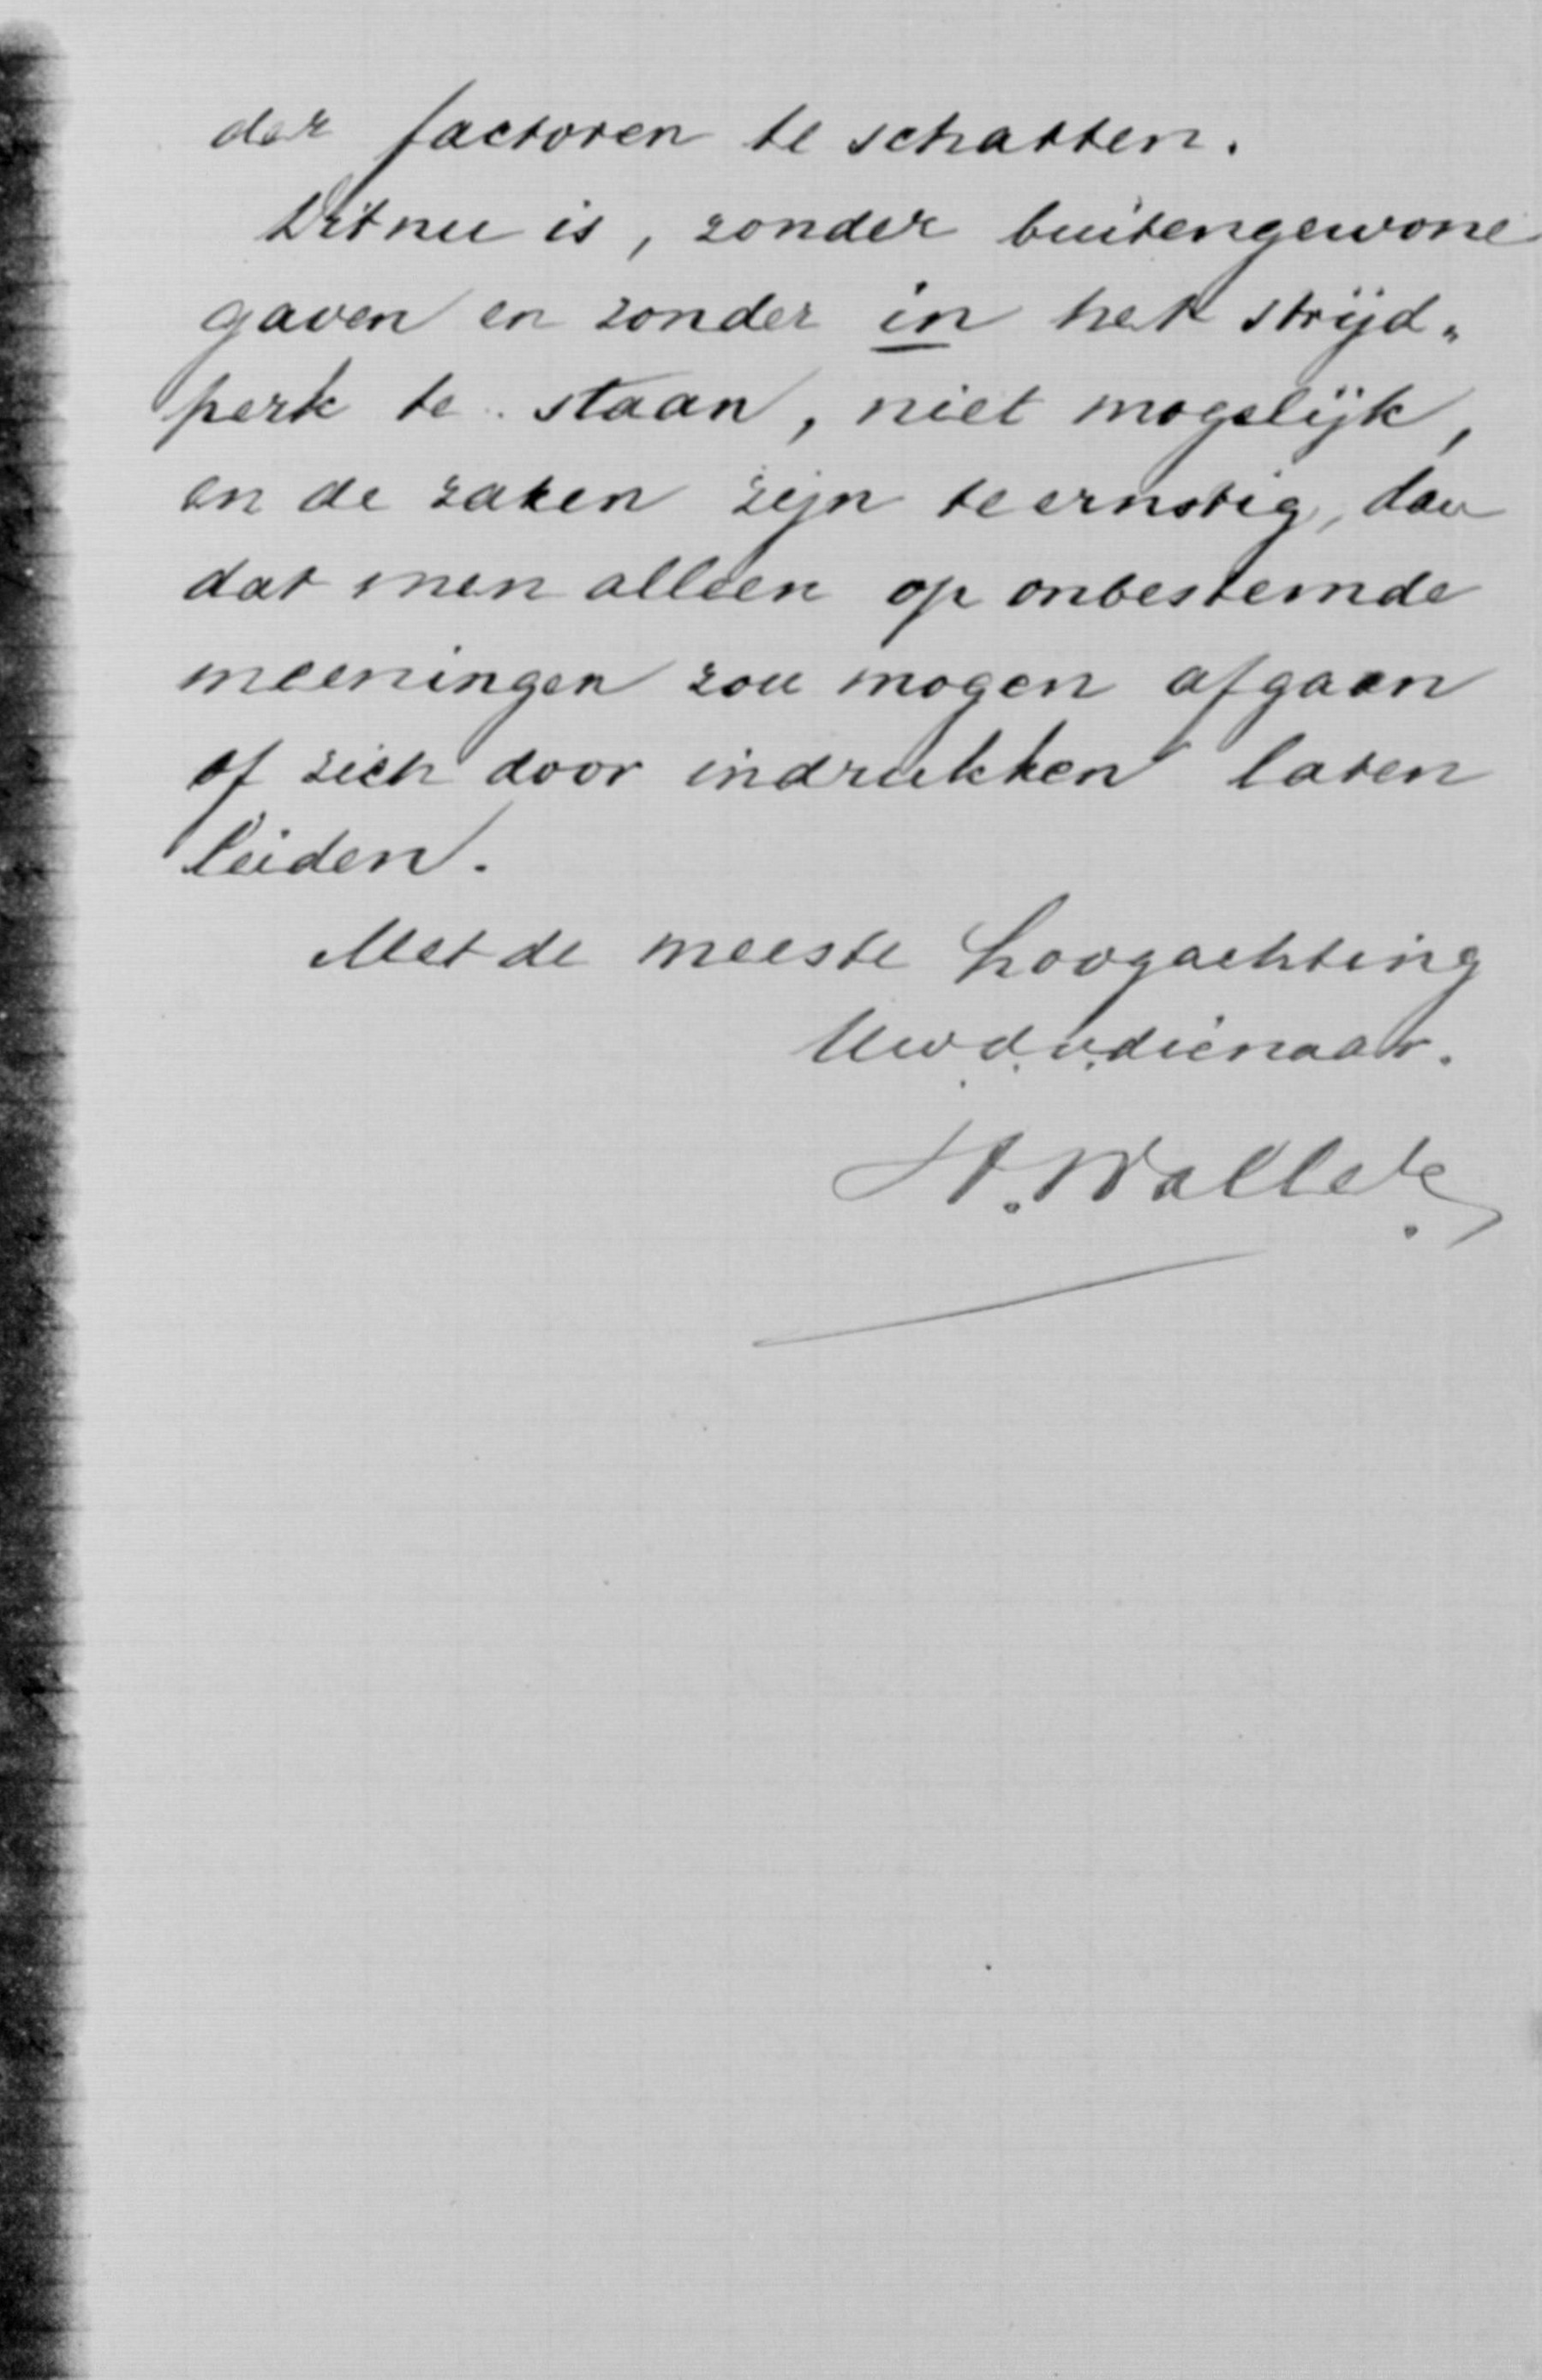 der factoren te schatten.
Dit nu is, zonder buitengewone
gaven en zonder in het strijd„
perk te staan, niet mogelijk,
en de zaken zijn te ernstig, dan
dat men alleen op onbestemde
meeningen zou mogen afgaan
of zich door indrukken laten
leiden.
Met de meeste hoogachting
Uw d. v. dienaar.
H. Waller.